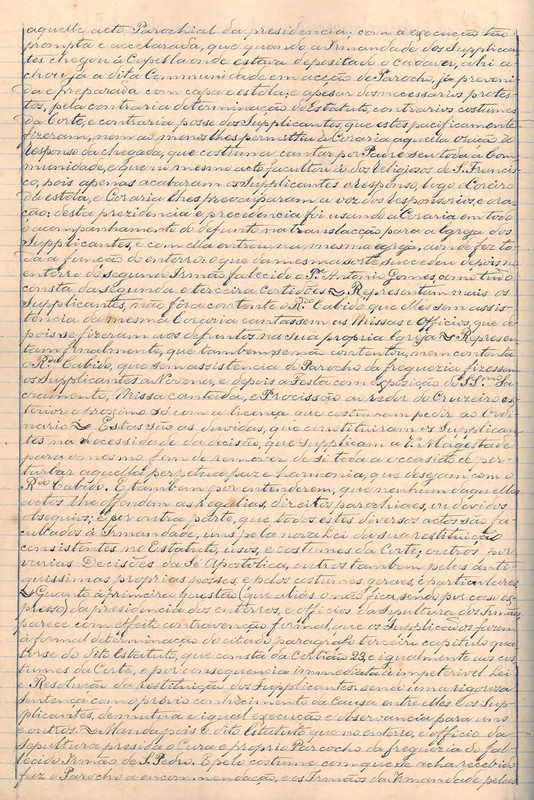 aquelle acto Parochial da presidencia; com a execução tão
prompta e accelarada, que quando a Irmandade dos Supplican-
tes chegou á Capella onde estava depositado o cadaver, ahi a-
chou já a dita Communidade em acção de Parocho, já preveni-
da e preparada com capa e estola; e apesar dos necessarios protes-
tos, pela contraria determinação do Estatuto, contrarios costumes
da Corte, e contraria posse dos Supplicantes, que estes pacificamente
fizeram, nem ao menos lhes permittiu a Coraria aquella oração do
responso da chegada, que costuma cantar por Padre seu toda a Com-
munidade, e que ni mesmo acto facultou á dos Religiosos de S. Francis-
co; pois apenas acabaram os Supplicantes o responso, logo o Coreiro
da estola, e Coraria lhes preoccuparam a voz dos responsorios, e ora-
ção; desta prezidencia e precedencia foi usando a Coraria em todo
o acompanhamento do defunto na translacção para a Igreja dos
Supplicantes, e com ella entrou na mesma egreja, aonde fez to-
da a função do enterro: o que da mesma sorte succedeu depois no
enterro do segundo Irmão fallecido o Pe. Antonio Gomes, como tudo
consta da segunda e terceira certidões. Representam mais os
Supplicantes, não fôra contente o Rdo. Cabido que elles sem assis-
tencia da mesma Coraria cantassem as Missas e Officios, que de-
pois se fizeram aos defuntos na sua propria Igreja. Represen-
tam finalmente, que tambem se não contentou, nem contenta
o Rdo. Cabido, que sem assistencia do Parocho da freguezia fizessem
os Supplicantes a Novena, e depois a Festa com exposição do SS.mo Sa-
cramento, Missa cantada, e Procissão ao redor do Cruzeiro ex-
terior e proximo só com a licença que costumam pedir ao Ordi-
nario. Estas são as duvidas, que constituiram os Supplican-
tes na necessidade da decisão, que supplicam a V. Magestade
para o mesmo fim de remover de si toda a occasião de per-
turbar aquella perpetua paz e harmonia, que desejam com o
Rdo. Cabido. E tambem por entenderem, que nenhum daquelles
actos lhe offendem as regalias, direitos parochiaes, ou devidos
obsequios; e por outra parte, que todos estes diversos actos são fa-
cultados á Irmandade, uns pela nova Lei da sua restituição
consistentes no Estatuto, usos, e costumes da Corte; outros por
varias Decisões da Sé Apostolica, outros tambem pelas anti-
quissimas proprias posses, e pelos costumes geraes, e particulares
Quanto á primeira questão (que aliás o não fica, sendo por caso ex-
presso) da presidencia dos enterros, e officios da sepultura dos Irmãos,
parece com effeito contravenção formal, que os Supplicados fazem
á formal determinação do citado paragrapho terceiro capitulo qua-
torse do dito Estatuto, que consta da Certidão 23, e igualmente aos cos-
tumes da Corte, e por consequencia immediata á imperterivel Lei
e Resolução da Restituição dos Supplicantes: sendo uma rigorosa
sentença com o prévio conhecimento da causa entre elles e os Sup-
plicantes, de mutua e igual execução e observancia para uns
e outros. Manda pois o dito Estatuto que no enterro, e officio da
sepultura presida o Cura e proprio Parocho da freguezia do fal-
lecido Irmão de S. Pedro. E pelo costume com que se acha recebido
faz o Parocho a encommendação, e os Irmãos da Irmandade pelas